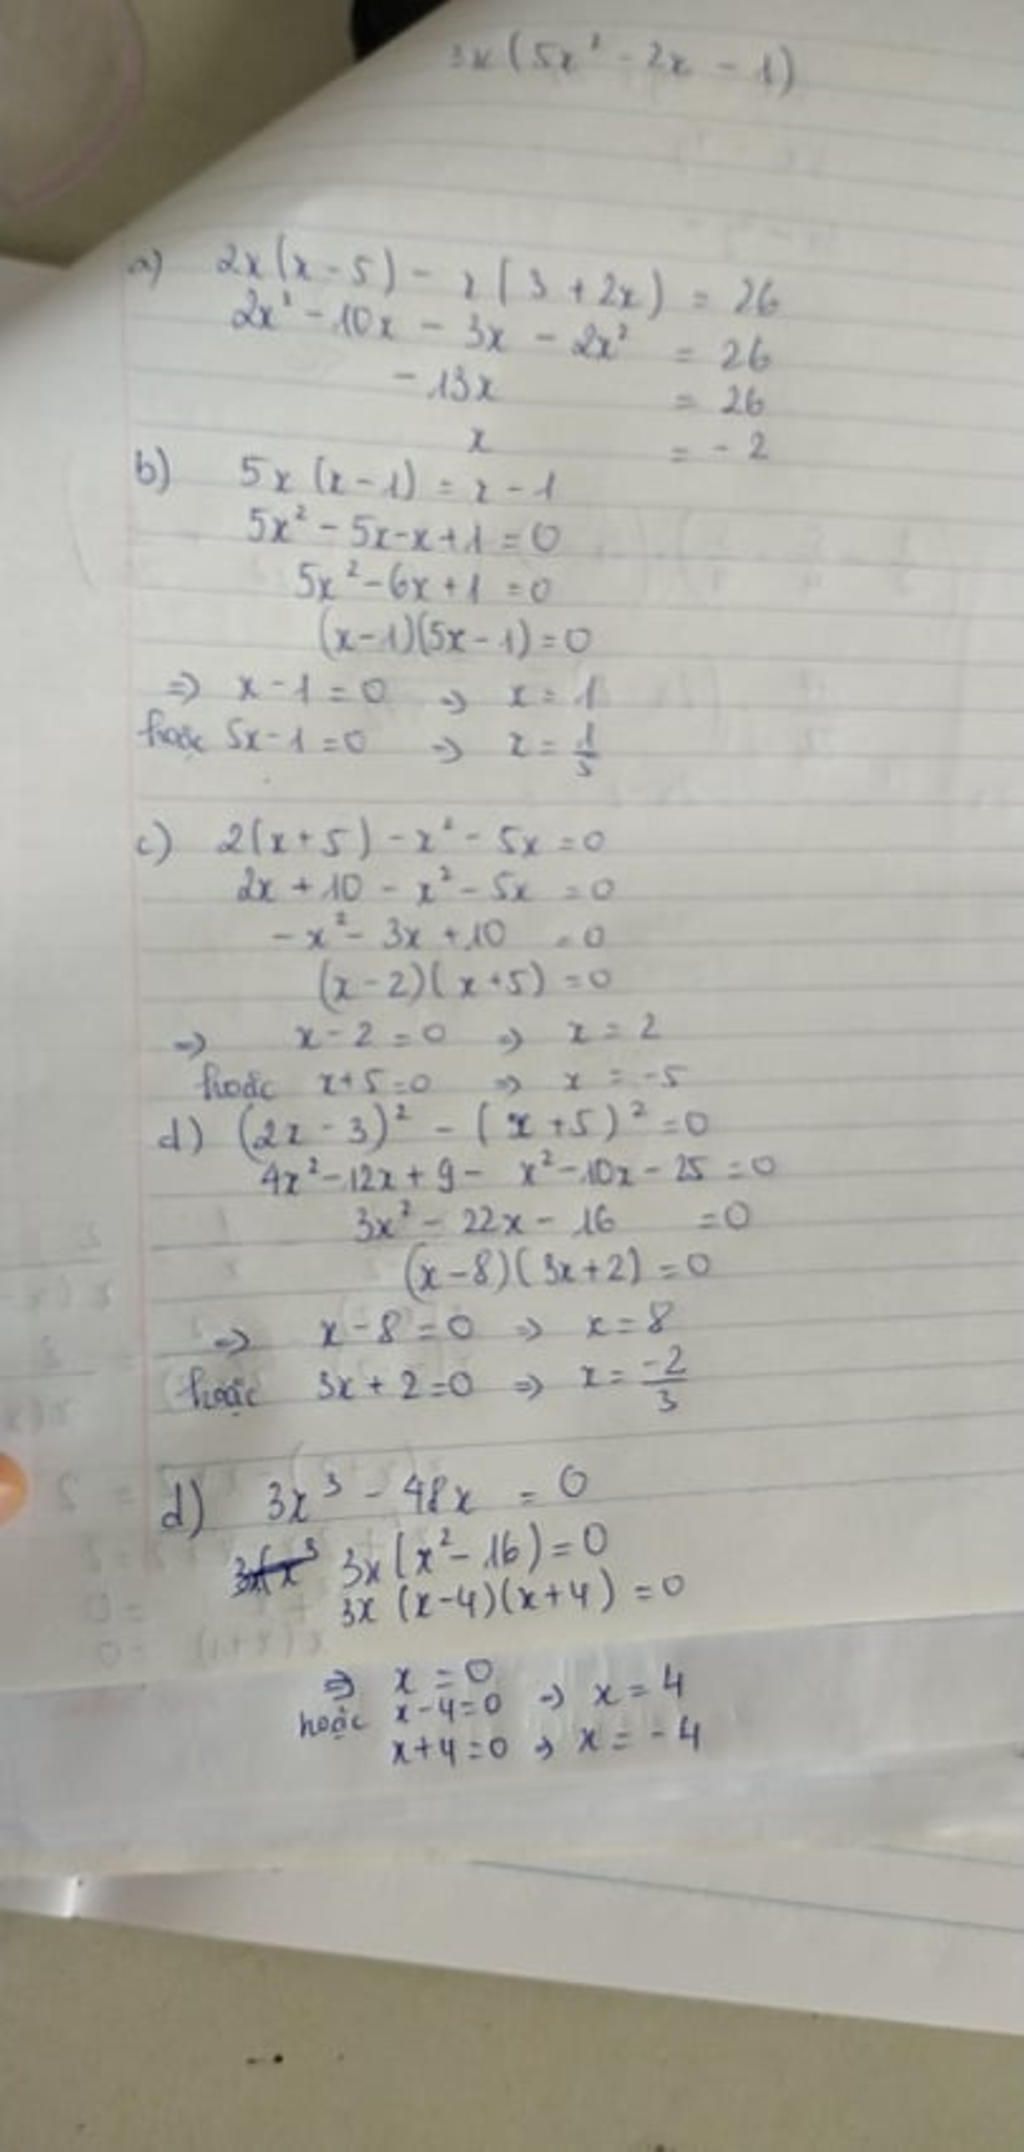 3x(5x² - 2x - 1)
a) 2x(x - 5) - x(3 + 2x) = 26
2x² - 10x - 3x - 2x² = 26
- 13x = 26
x = - 2
b) 5x (x - 1) = x - 1
5x² - 5x - x + 1 = 0
5x² - 6x + 1 = 0
(x - 1)(5x - 1) = 0
=> x - 1 = 0 => x = 1
hoặc 5x - 1 = 0 => x = 1/5
c) 2(x + 5) - x² - 5x = 0
2x + 10 - x² - 5x = 0
- x² - 3x + 10 = 0
(x - 2)(x + 5) = 0
=> x - 2 = 0 => x = 2
hoặc x + 5 = 0 => x = -5
d) (2x - 3)² - (x + 5)² = 0
4x² - 12x + 9 - x² - 10x - 25 = 0
3x² - 22x - 16 = 0
(x - 8)(3x + 2) = 0
=> x - 8 = 0 => x = 8
hoặc 3x + 2 = 0 => x = -2/3
d) 3x³ - 48x = 0
3x(x² - 16) = 0
3x (x - 4)(x + 4) = 0
=> x = 0
hoặc x - 4 = 0 => x = 4
x + 4 = 0 => x = - 4